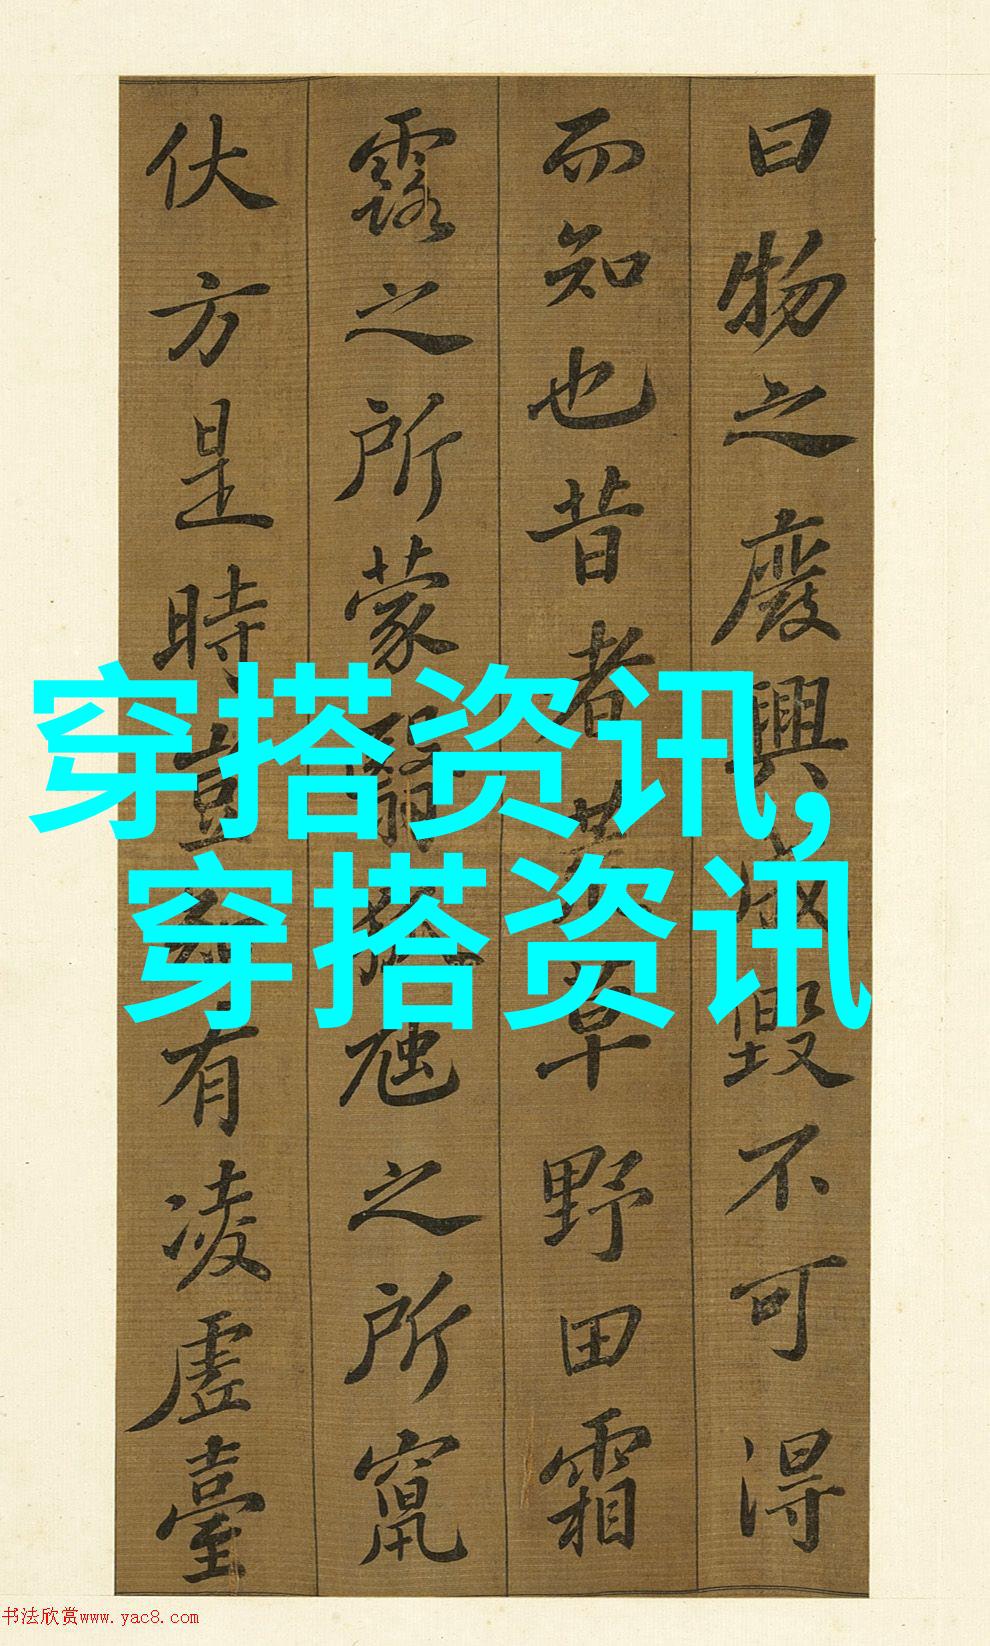 曰物之廢興成毀不可得
而知也昔者荒草野田霜
露之所蒙翳狐虺之所竄
伏方是時豈知有凌虛臺
穿搭资讯,
穿搭资讯
书法欣赏www.yac8.com